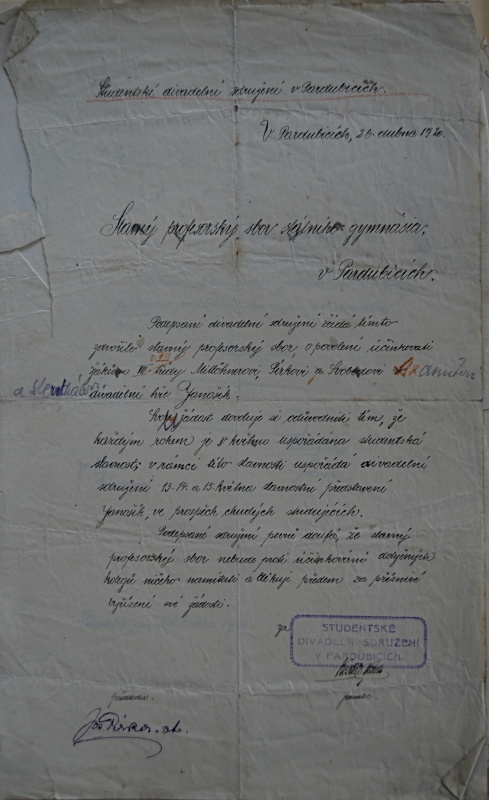 Studentské divadelní sdružení v Pardubicích.
V Pardubicích, 26. dubna 1920.
Slavný profesorský sbor státního gymnásia,
v Pardubicích.
Podepsané divadelní sdružení žádá tímto
zdvořile slavný profesorský sbor o povolení účinkovati
žákům VII. třídy a Svobodovi
divadelní hře Janošík.
žádost dovoluje si odůvodniti tím, že
každým rokem je v květnu uspořádána studentská
slavnost; v rámci této slavnosti uspořádá divadelní
sdružení 13. 14. a 15. května slavnostní představení
Janošík, ve prospěch chudých studujících.
Podepsané sdružení pevně doufá, že slavný
profesorský sbor nebude proti účinkování dotyčných
kolegů ničeho namítati a děkuji předem za příznivé
vyřízení své žádosti.
za
STUDENTSKÉ
DIVADELNÍ SDRUŽENÍ
V PARDUBICÍCH.
předseda: